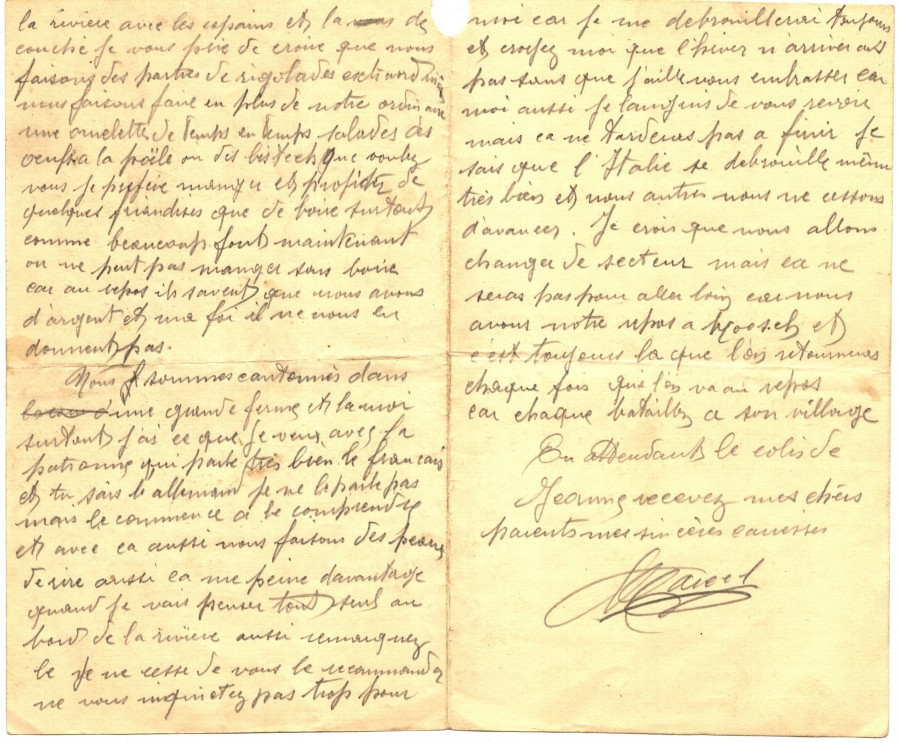 la rivière avec les copains et la de
couché je vous prie de croire que nous
faisons des parties de rigolades extraordinaires
nous faisons faire en plus de notre ordinaire
une omelette de temps en temps salades des
oeufs a la poële ou des bisteck que voulez
vous je préfère manger et profiter de
quelques friandises que de boire surtout
comme beaucoup font maintenant
on ne peut pas manger sans boire
car au repos ils savent que nous avons
d'argent et ma foi il ne nous en
donnent pas.
Nous sommes cantonnés dans
une grande ferme et la moi
surtout j'ais ce que je veux avec la
patronne qui parle très bien le français
et tu sais le allemand je ne le parle pas
mais le commence a le comprendre
et avec ca aussi nous faisons des
de rire aussi ca me peine davantage
quand je vais penser tout seul au
bord de la rivière aussi remarquez
le je ne cesse de vous le recommander
ne vous inquietez pas trop pour
moi car je me debrouillerai toujours
et croyez moi que l'hiver n'arrivera
pas sans que j'aille vous embrasser car
moi aussi je languis de vous revoir
mais ca ne tarderas pas a finir je
sais que l'Italie se debrouille même
très bien et nous autres nous ne cessons
d'avancer. Je crois que nous allons
changer de secteur mais ca ne
seras pas pour aller loin car nous
avons notre repos a Moosch et
c'est toujours la que l'on retourneras
chaque fois que l'on va au repos
car chaque bataillon a son village
En attendant le colis de
Jeanne recevez mes chers
parents mes sincères caresses
Marcel